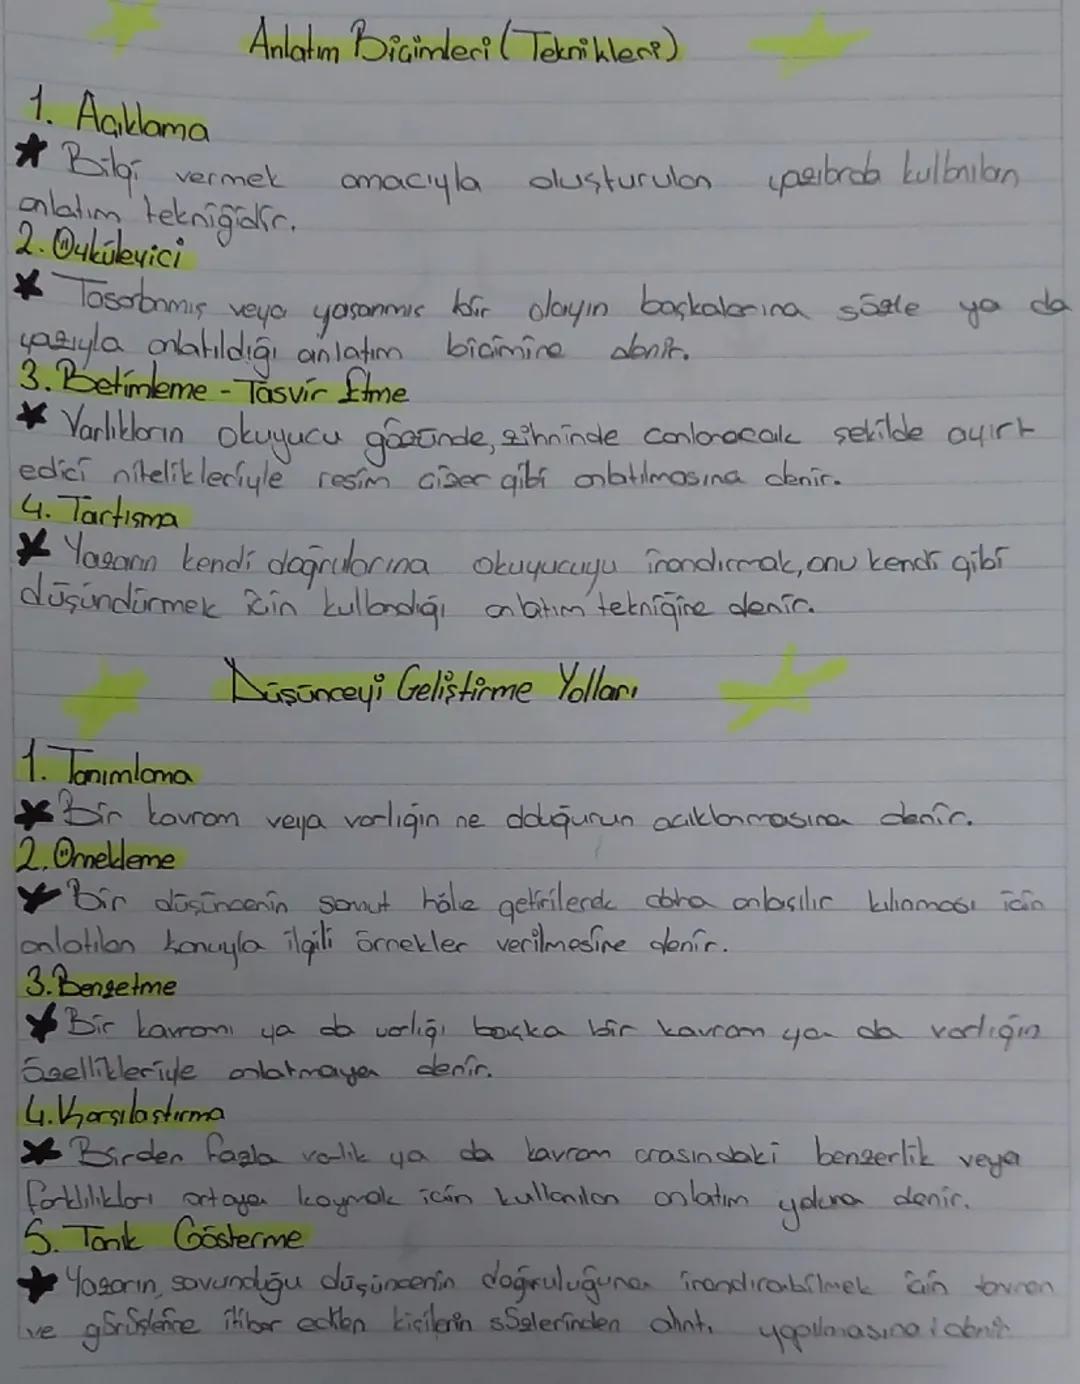 Anlatım Biçimleri (Teknikleri)
1. Açıklama
* Bilgi vermek amacıyla oluşturulan yazılarda kullanılan
anlatım tekniğidir.
2. Öyküleyici
* Tasarlanmış veya yaşanmış bir olayın başkalarına sözle ya da
yazıyla anlatıldığı anlatım biçimine denir.
3. Betimleme - Tasvir Etme
* Varlıkların okuyucu gözünde, zihninde canlanacak şekilde ayırt
edici nitelikleriyle resim çizer gibi anlatılmasına denir.
4. Tartışma
* Yazarın kendi doğrularına okuyucuyu inandırmak, onu kendi gibi
düşündürmek için kullandığı anlatım tekniğine denir.
Düşünceyi Geliştirme Yolları
1. Tanımlama
* Bir kavram veya varlığın ne olduğunun açıklanmasına denir.
2. Örnekleme
* Bir düşüncenin somut hâle getirilerek daha anlaşılır kılınması için
anlatılan konuyla ilgili örnekler verilmesine denir.
3. Benzetme
* Bir kavramı ya da varlığı başka bir kavram ya da varlığın
özellikleriyle anlatmaya denir.
4. Karşılaştırma
* Birden fazla varlık ya da kavram arasındaki benzerlik veya
farklılıkları ortaya koymak için kullanılan anlatım yoluna denir.
5. Tanık Gösterme
* Yazarın, savunduğu düşüncenin doğruluğuna inandırabilmek için
ve görüşlerine itibar edilen kişilerin sözlerinden alıntı yapılmasına denir